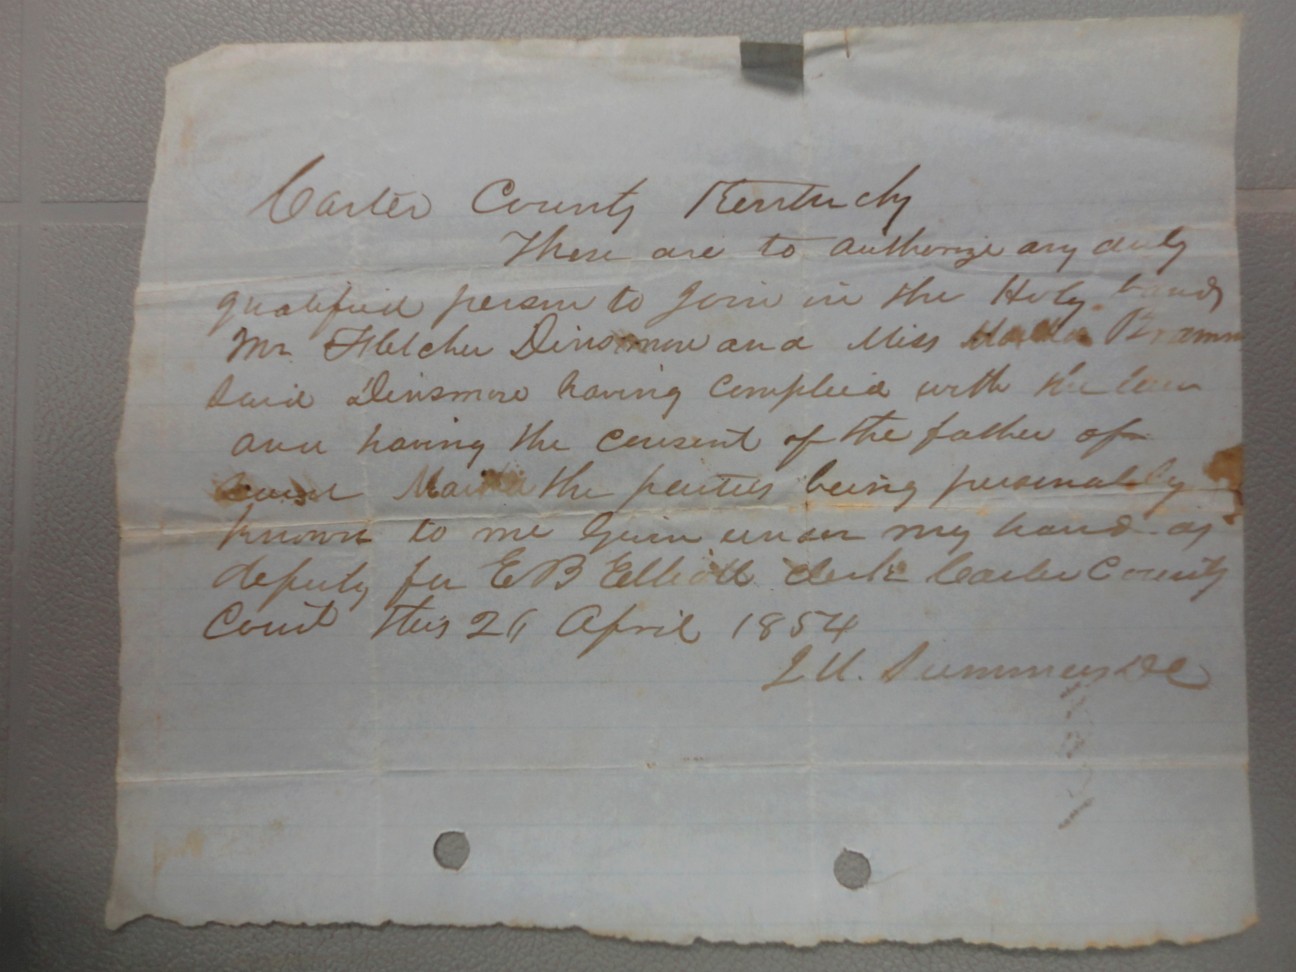 Carter County Kentucky
These are to authorize any duly
qualified person to Join in the Holy bands
Mr. Fletcher Dinsmore and Miss Bramm
said Dinsmore having complied with the law
and having the consent of the father of
said the parties being personally
known to me Given under my hand as
deputy for E B Elliott clerk Carter County
Court this April 1854
Summers DC